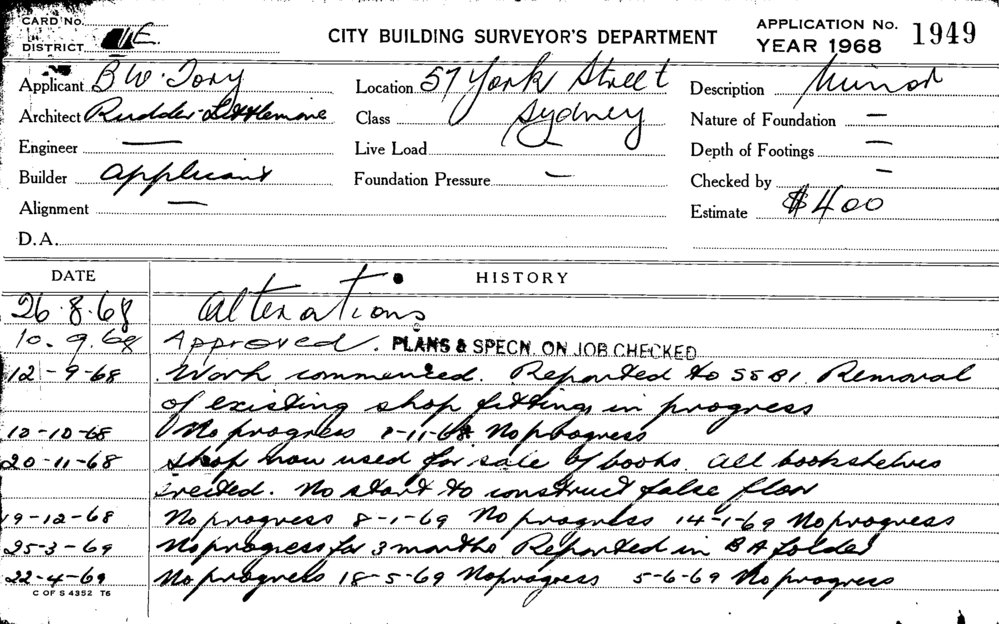 CARD No.
DISTRICT E.
CITY BUILDING SURVEYOR'S DEPARTMENT
APPLICATION No. 1949
YEAR 1968
Applicant B W. Tory
Location 57 York Street
Description Minor
Architect Rudder Littlemore
Class Sydney
Nature of Foundation —
Engineer —
Live Load
Depth of Footings —
Builder Applicant
Foundation Pressure —
Checked by —
Alignment —
Estimate $400
D.A.
DATE HISTORY
26.8.68 Alterations
10.9.68 Approved. PLANS & SPECN. ON JOB CHECKED
12-9-68 Work commenced. Reported to SSBI. Removal
of existing shop fittings in progress
10-10-68 No progress 8-11-68 No progress
20-11-68 Shop now used for sale of books. All bookshelves
erected. No start to construct false floor
19-12-68 No progress 8-1-69 No progress 14-1-69 No progress
25-3-69 No progress for 3 months Reported in BA folder
22-4-69 No progress 18-5-69 No progress 5-6-69 No progress
C OF S 4352 T6